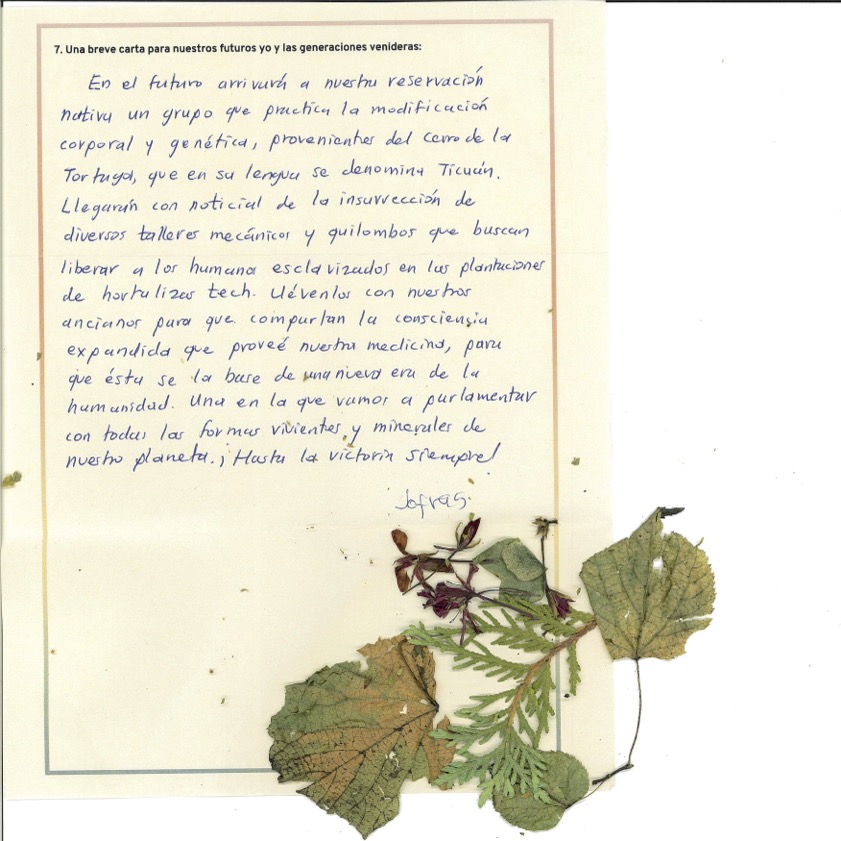 7. Una breve carta para nuestros futuros yo y las generaciones venideras:
En el futuro arrivará a nuestra reservación
nativa un grupo que practica la modificación
corporal y genética, provenientes del cerro de la
Tortuga, que en su lengua se denomina Ticuán.
Llegarán con noticial de la insurrección de
diversos talleres mecánicos y quilombos que buscan
liberar a los humana esclavizados en las plantaciones
de hortalizas tech. Llévenlos con nuestros
ancianos para que compartan la consciencia
expandida que proveé nuestra medicina, para
que ésta se la base de una nueva era de la
humanidad. Una en la que vamos a parlamentar
con todas las formas vivientes y minerales de
nuestro planeta. ¡Hasta la victoria siempre!